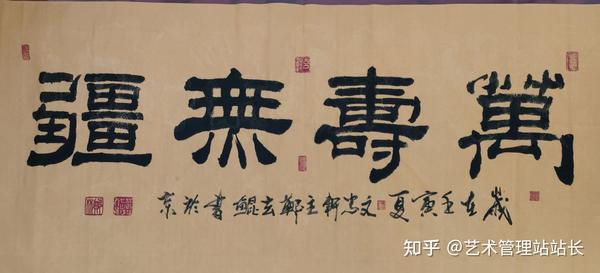 萬壽無疆
歲在壬寅夏文宏軒主鄭玄鯤書於京
知乎 @艺术管理站站长